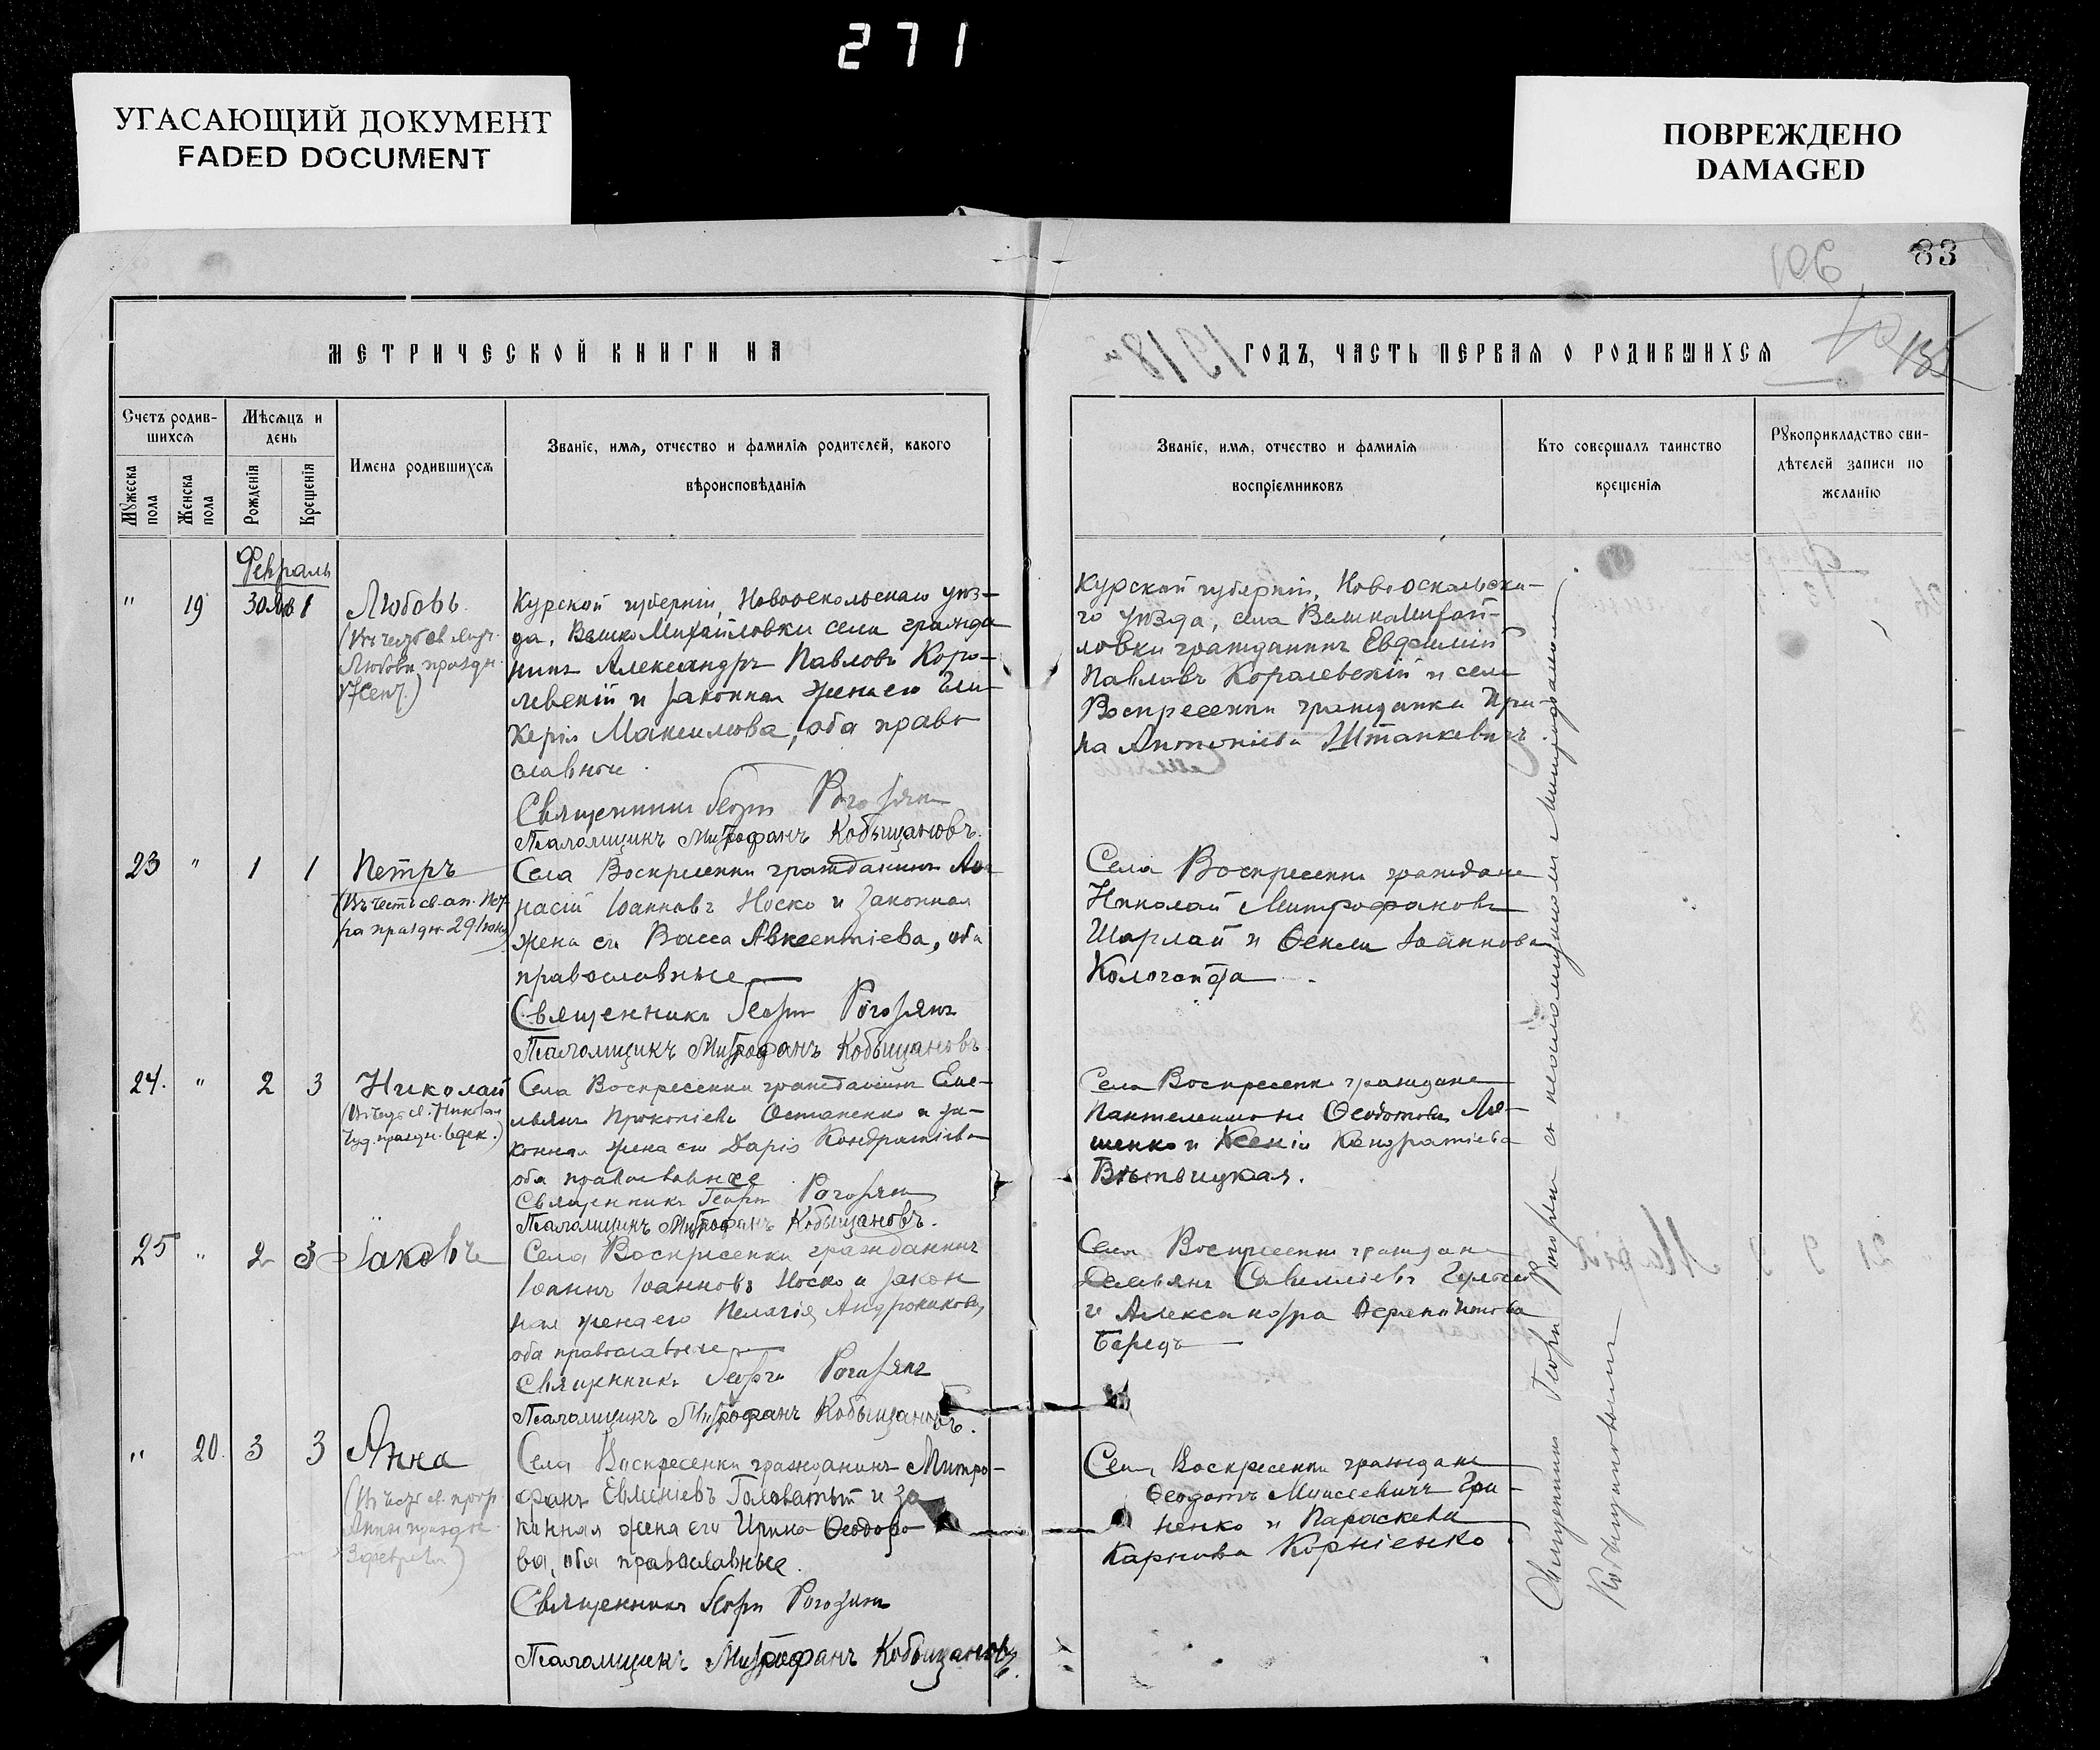 271
УГАСАЮЩИЙ ДОКУМЕНТ
FADED DOCUMENT
ПОВРЕЖДЕНО
DAMAGED
83
МЕТРИЧЕСКОЙ КНИГИ НА
ГОДЪ, ЧАСТЬ ПЕРВАЯ О РОДИВШИХСЯ
Счетъ родив-
шихся
Мужеска пола
Женска пола
Мѣсяцъ и
день
Рожденія
Крещенія
Имена родившихся
Званіе, имя, отчество и фамилія родителей, какого
вѣроисповѣданія
Званіе, имя, отчество и фамилія
воспріемниковъ
Кто совершалъ таинство
крещенія
Рукоприкладство сви-
дѣтелей записи по
желанію
Февраль
" 19 1
Любовь
Курской губерніи, Новооскольскаго уѣз-
да, Михайловки села гражда
нинъ Александръ Павловъ Коро-
левскій и законная жена его Гли-
керія Максимова, оба право
славные.
Священникъ Георгій
Псаломщикъ Митрофанъ Кобыщановъ.
Курской губерніи, Новооскольска-
го уѣзда, села
ловки гражданинъ Евфимій
Павловъ Королевскій и села
Воскресенки гражданка Ири-
на Антоніева Штанкевичъ
23 " 1 1
Петръ
(Въ честь св. ап. Пет
ра праздн. 29 Іюня)
Села Воскресенки гражданинъ Аѳа
насій Іоанновъ Носко и законная
жена его Васса Авксентіева, оба
православные
Священникъ Георгій
Псаломщикъ Митрофанъ Кобыщановъ.
Села Воскресенки граждане
Николай Митрофановъ
Шарлай и Ѳекла Іоаннова
24. " 2 3
Николай
(Въ честь св. Николая
Чуд. праздн. 6 дек.)
Села Воскресенки гражданинъ Еме-
льянъ Прокопіевъ Остапенко и за-
конная жена его Дарія Кондратіева
оба православные
Священникъ Георгій
Псаломщикъ Митрофанъ Кобыщановъ.
Села Воскресенки граждане
Пантелеимонъ Ѳеодотовъ Ля-
шенко и Ксенія Кондратіева
25 " 2 3
Іаковъ
Села Воскресенки гражданинъ
Іоаннъ Іоанновъ Носко и закон
ная жена его Пелагія Андроникова,
оба православные
Священникъ Георгій
Псаломщикъ Митрофанъ Кобыщановъ.
Села Воскресенки граждане
Демьянъ
и Александра
" 20. 3 3
Анна
(Въ честь св. прор.
Анны праздн.
3 февраля)
Села Воскресенки гражданинъ Митро-
фанъ Евменіевъ Головатый и за
конная жена его Ирина Ѳеодоро
ва, оба православные.
Священникъ Георгій
Псаломщикъ Митрофанъ Кобыщановъ.
Села Воскресенки граждане
Ѳеодотъ Моисеевичъ Гри-
ненко и Параскева
Карпова Корніенко
Священникъ Георгій съ псаломщикомъ Митрофаномъ
Кобыщановымъ